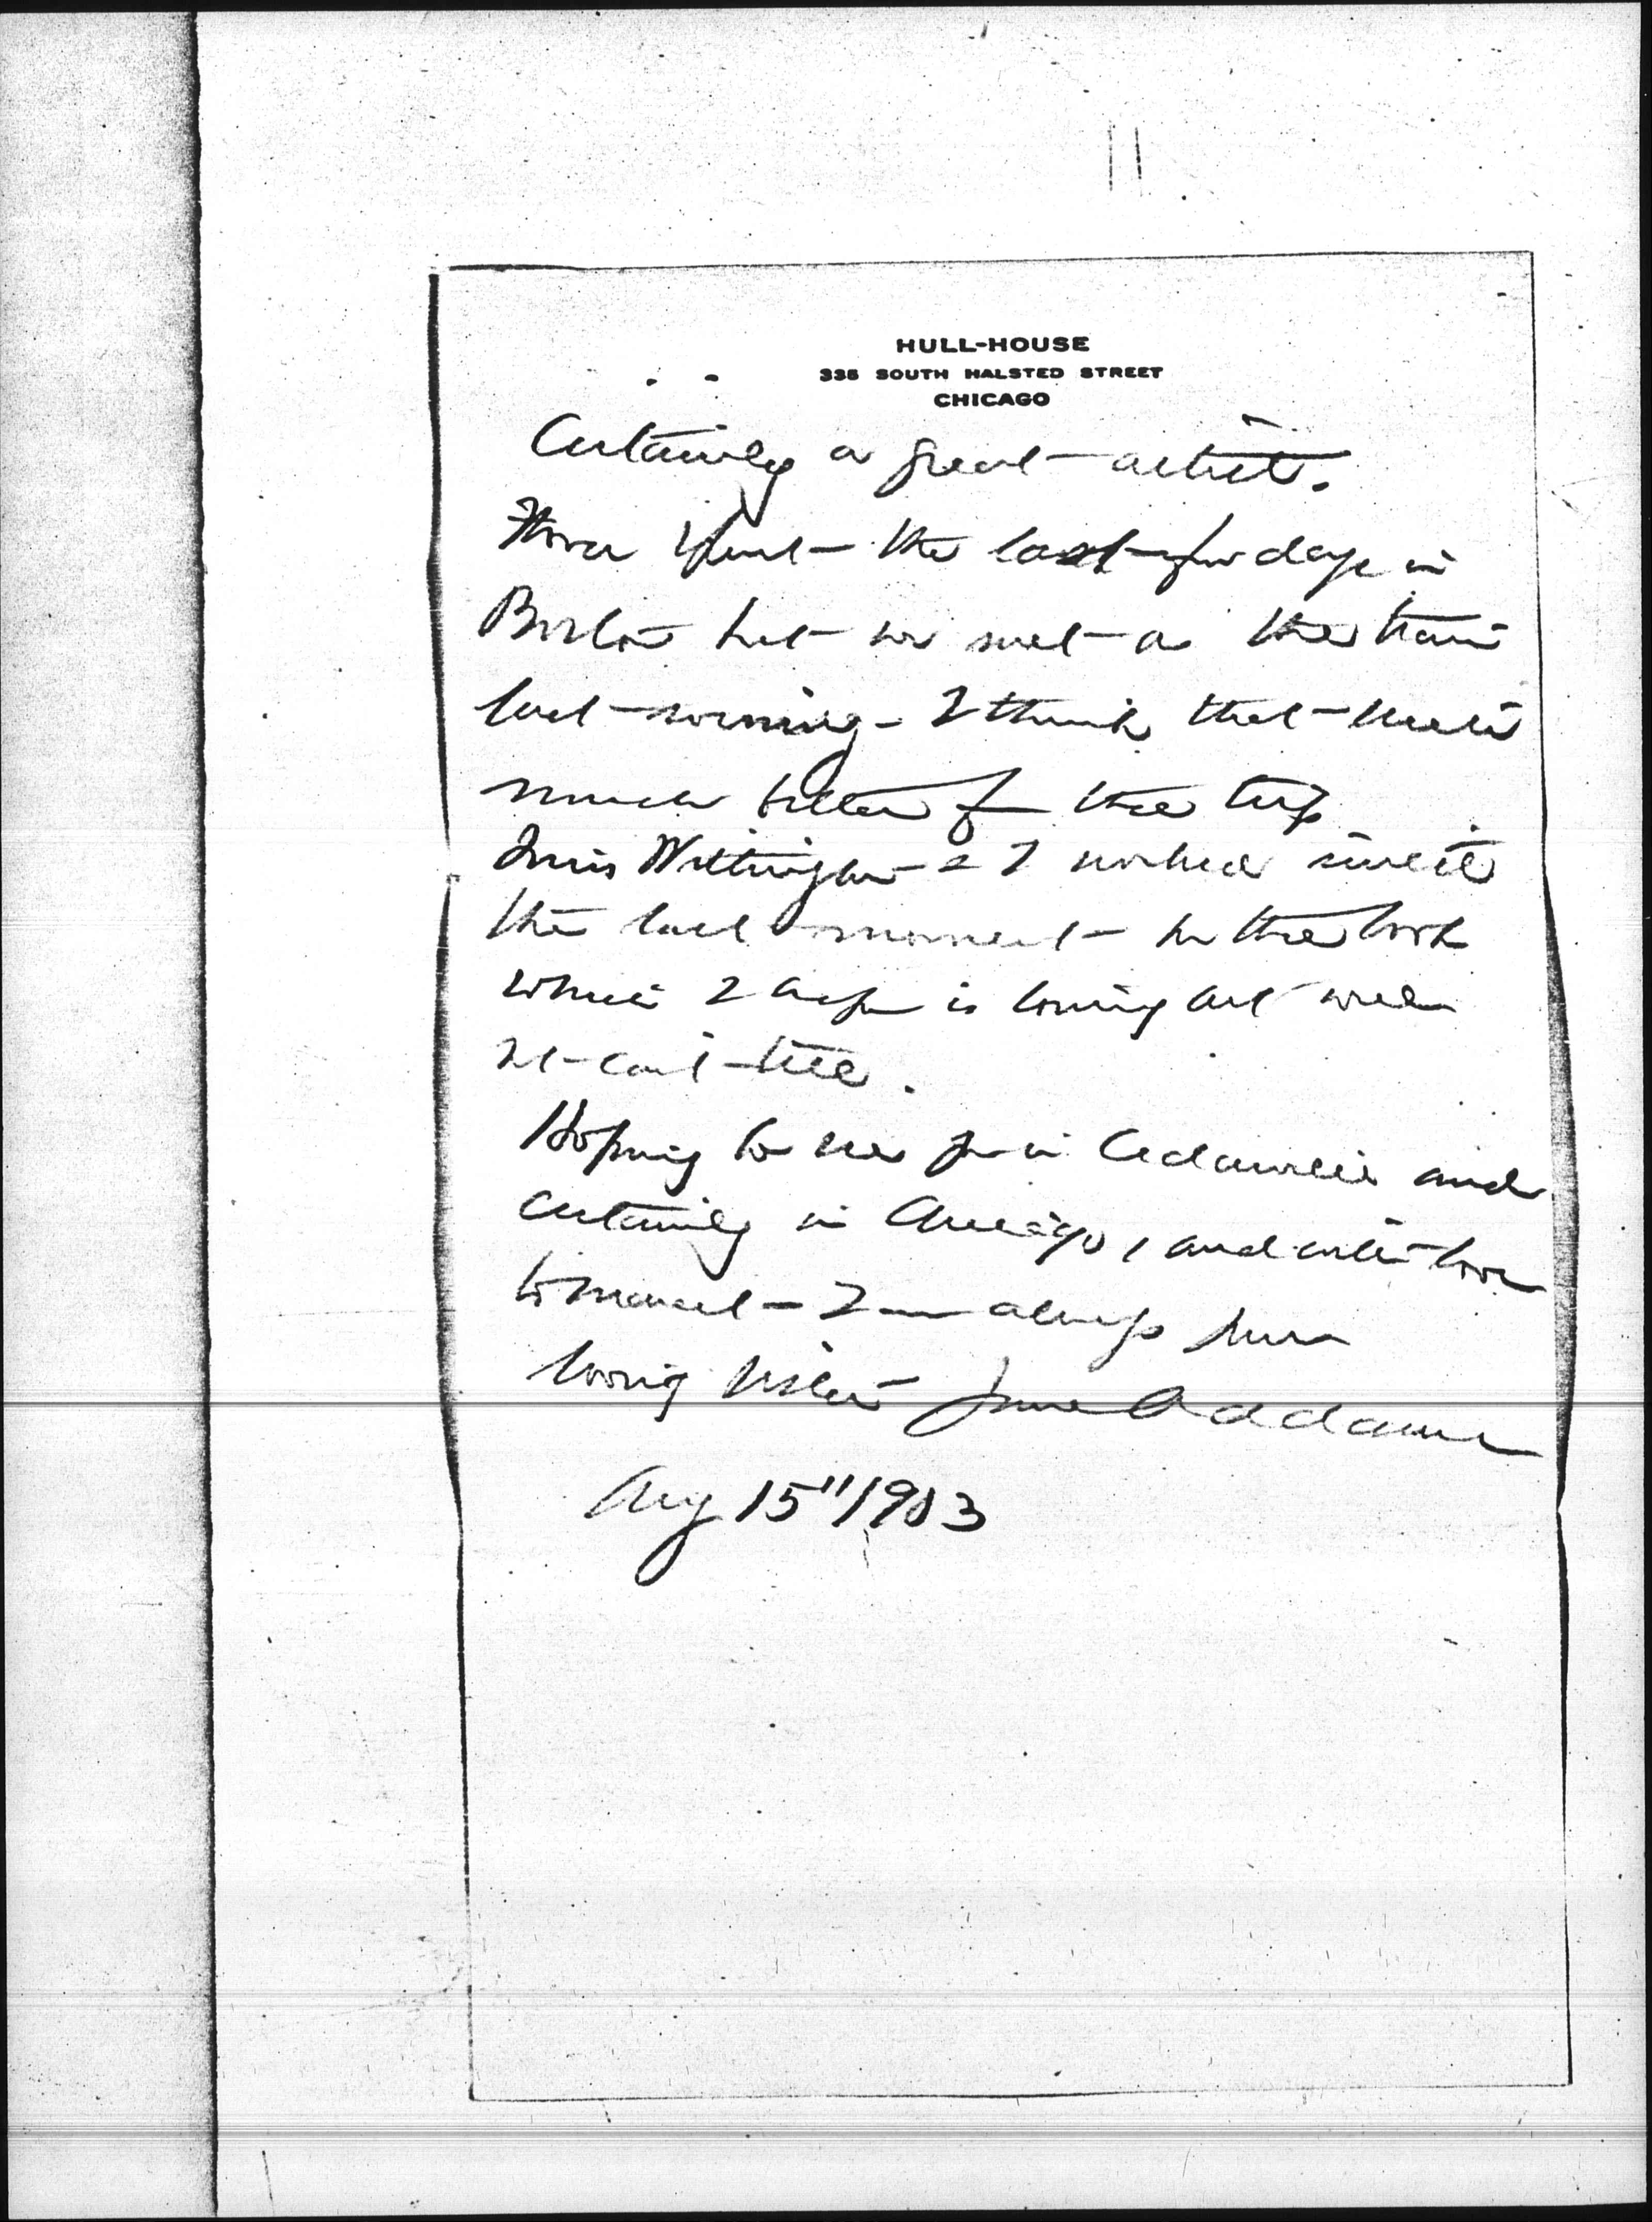 HULL-HOUSE
335 SOUTH HALSTED STREET
CHICAGO
Certainly a great artist.
spent the last few days in
Boston but we met on the train
last evening - I think that
much better for the trip
Miss Withington & I worked until
the last moment on the book
which I hope is coming out well
at last.
Hoping to see you in Cedarville and
certainly in Chicago, and with love
to Marcet - I am always your
loving sister Jane Addams
Aug 15" 1903